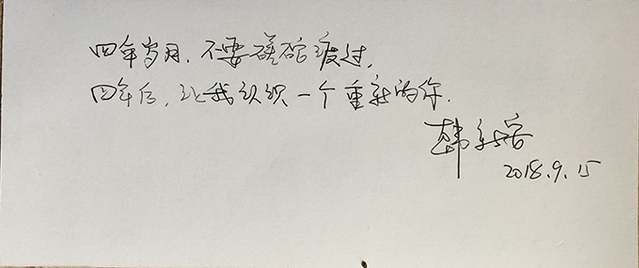 四年岁月，不要蹉跎渡过，
四年后，让我认识一个重新的你．
韩
2018.9.15